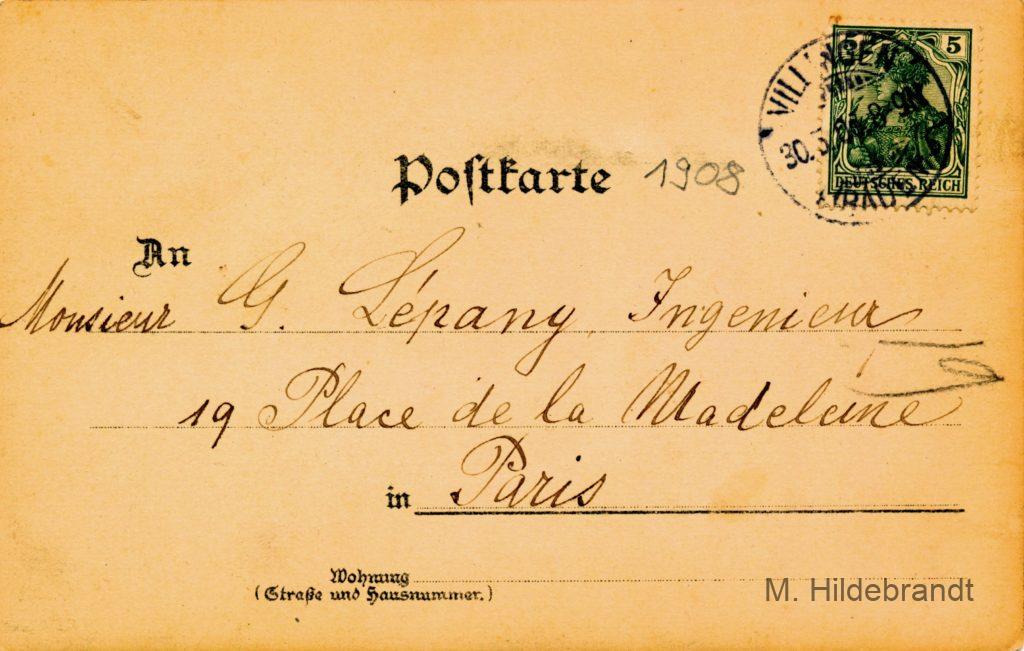 5
VILLINGEN
30.3. 8-9N
DEUTSCHES REICH
Postkarte 1908
An
Monsieur G. Lépany, Ingenieur
19 Place de la Madeleine
in Paris
Wohnung
(Straße und Hausnummer.)
M. Hildebrandt